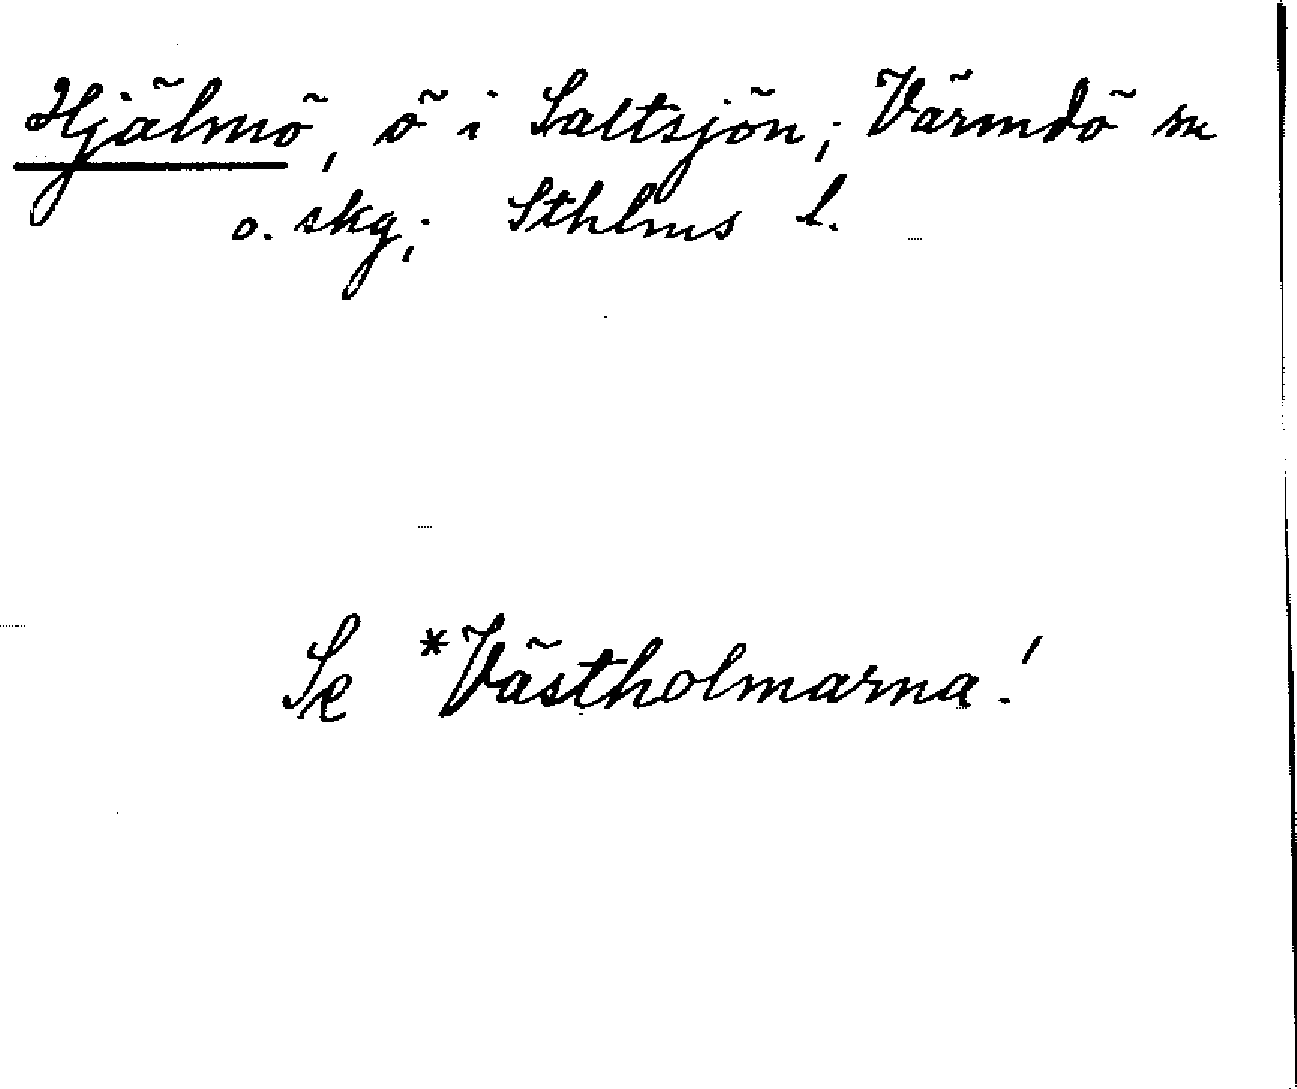 Hjälmö, ö i Saltsjön; Värmdö sn
o. skg; Sthlms l.
Se *Västholmarna!